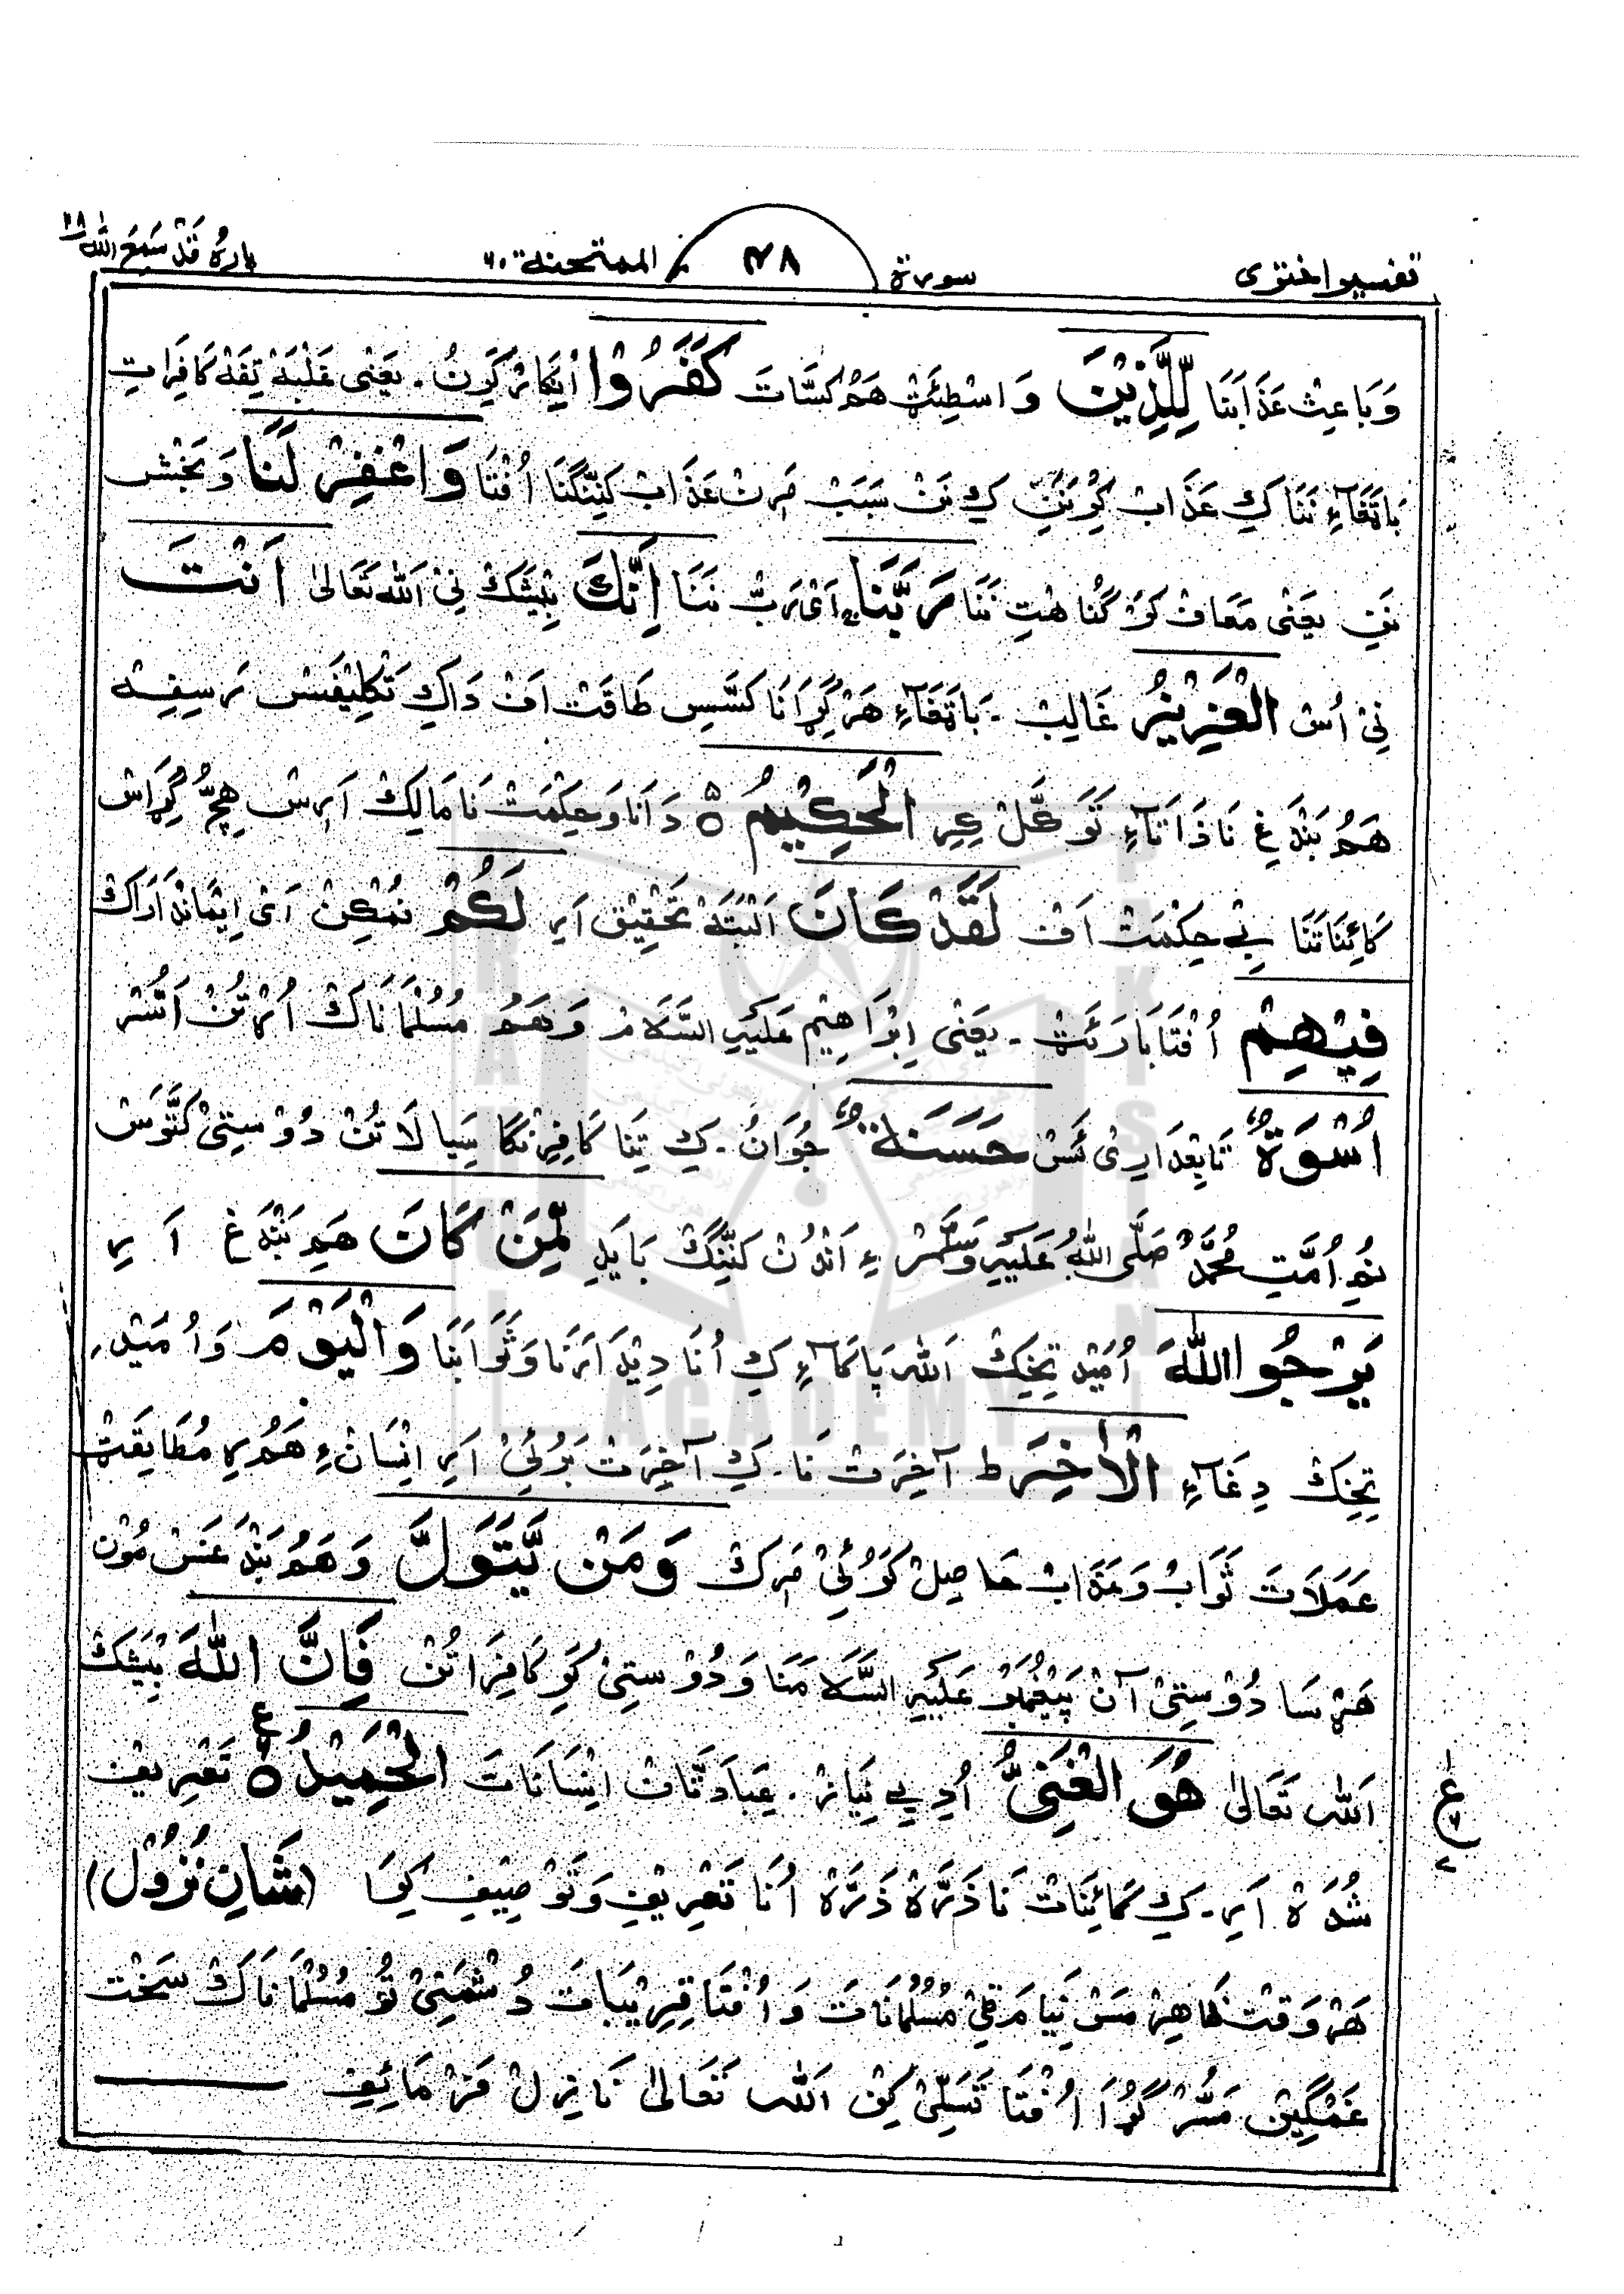 تفسیر اختری سورة ۴۸ الممتحنة ۶۰ پاره قَدْ سَمِعَ اللّٰه ۲۸
وَبَاعِثْ عَذَابَنَا لِّلَّذِیْنَ وَاسْطِئَٹْ هَمُ کَسَّاتَ کَفَرُوْا اِنْکَارْ کَرِنُ۔ یَعْنِیْ غَلْبَهْ تِفَهْ کَافِرَاتِ
بَاتَغَآءِ نَنَا کِ عَذَابْ کِرِ نَنِ کِ نَنْ سَبَبْ مَرِنْ عَذَابْ کِنِّنْگنَا اُفْتَا وَاغْفِرْ لَنَا وَ بَخْشْ
نَنِ یَعْنِیْ مَعَافْ کَرْ گُنَا هْتِ نَنَا رَبَّنَا اَیْ رَبُّ نَنَا اِنَّکَ بِیْشَکْ نِیْ اَللّٰه تَعَالٰی اَنْتَ
نِیْ اُسْ الْعَزِیْزُ غَالِبْ۔ بَاتَغَآءِ هَرْ گِڑَانَا کَسَّسِ طَاقَتْ اَفْ دَاکِ تَکْلِیْفَسْ رَسِفِهْ
هَمُ بَنْدَغِ نَا ذَاتَآءِ تَوَکَّلْ کِرِ الْحَکِیْمُ ۵ دَانَا وَحِکْمَتْ نَا مَالِکْ اَرِسْ هِچُّ گِڑَاسْ
کَائِنَاتَنَا بِیْ حِکْمَتْ اَفْ لَقَدْ کَانَ اَلْبَتَّهْ تَحْقِیْقْ اَرِ لَکُمْ نُمْکِنْ اَیْ اِیْمَانْدَارَاکْ
فِیْهِمْ اُفْتَا بَارَئَٹْ۔ یَعْنِیْ اِبْرَاهِیْم عَلَیْهِ السَّلَامْ وَهَمُ مُسُلْمَانَاکْ اُرْتُنْ اَسُّرْ
اُسْوَةٌ تَابِعْدَارِیْ ئَسْ حَسَنَةٌ جُوَانُ۔ کِ تِنَا کَافِرْنْگَا سِیَالَاتُنْ دُوْسِتِیْ کَتَّوَسْ
نُمِ اُمَّتِ مُحَمَّدْ صَلَّی اللّٰهُ عَلَیْهِ وَسَلَّمَ ءِ اَنْدُنْ کَنِّنْگْ بَایَدِ لِّمَنْ کَانَ هَمِ بَنْدَغْ اَرِ
یَرْجُوا اللّٰهَ اُمِیْد تِخِکْ اَللّٰه پَاکَآءِ کِ اُنَا دِیْدَارَنَا وَثَوَابَنَا وَالْیَوْمَ وَاُمِیْد
تِخِکْ دِغَآءِ الْاٰخِرَ ط آخِرَتْ نَا۔ کِ آخِرَتْ بَرُوْئِیْ اَرِ اِنْسَانْ ءِ هَمُرِ مُطَابِقَتْ
عَمَلَاتَ ثَوَابْ وَعَذَابْ حَاصِلْ کَرُوْئِیْ مَرِکْ وَمَنْ یَّتَوَلَّ وَهَمُ بَنْدَغَسْ مُوْن
هَڑْسَا دُوْسِتِیْ آنْ پَیْغُمَبْر عَلَیْهِ السَّلَامَنَا وَدُوْسِتِیْ کَرِ کَافِرَاتُنْ فَاِنَّ اللّٰهَ بِیْشَکْ
اَللّٰه تَعَالٰی هُوَ الْغَنِیُّ اُدِ بِیْ نِیَازْ۔ عِبَادَتَّانْ اِنْسَانَاتَ الْحَمِیْدُ ۵ تَعْرِیْف
شُدَهْ اَرِ۔ کِ کَائِنَاتْ نَا ذَرَّهْ ذَرَّهْ اُنَا تَعْرِیْفِ وَتَوْصِیْفِ کِرَا (شَانِ نُزُوْل)
هَرْوَقْتْ ظَاهِرْ مَسْ نِیَامَ قِیْ مُسُلْمَانَاتَ وَ اُفْتَا قِرِیْبَاتَ دُشْمَنِیْ تُوْ مُسُلْمَانَاکْ سَخْت
غَمْگِیْن مَسُّرْ گُڑَا اُفْتَا تَسَلِّیْ کِنْ اَللّٰه تَعَالٰی نَازِلْ فَرْمَائِفِ
ع
RAHI KISHAN ACADEMY